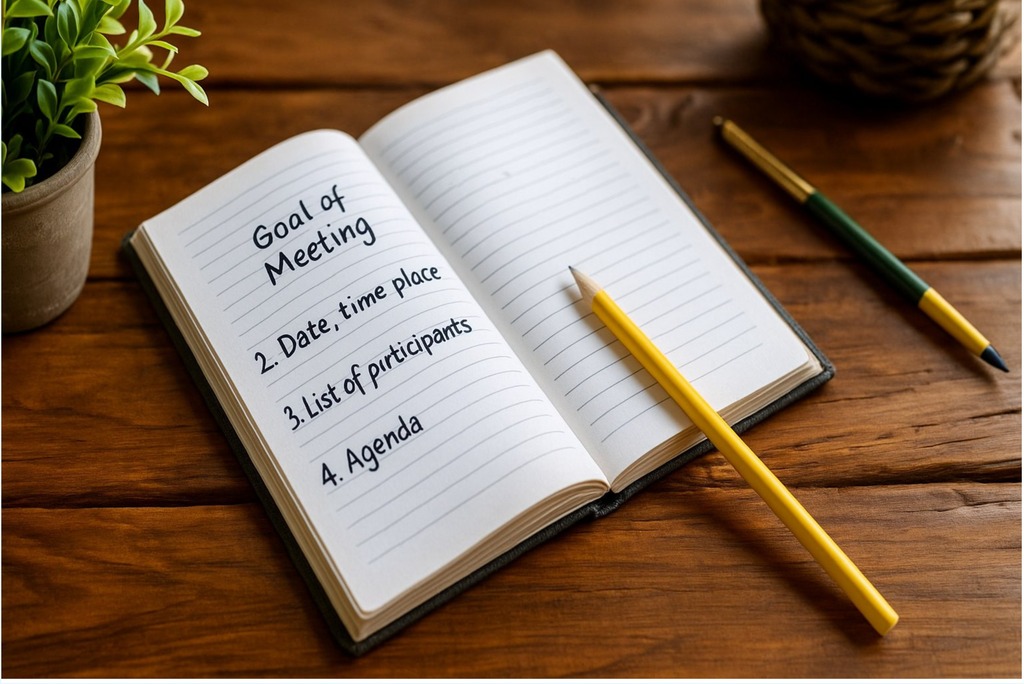 Goal of
Meeting
2. Date, time place
3. List of pırticipants
4. Agenda